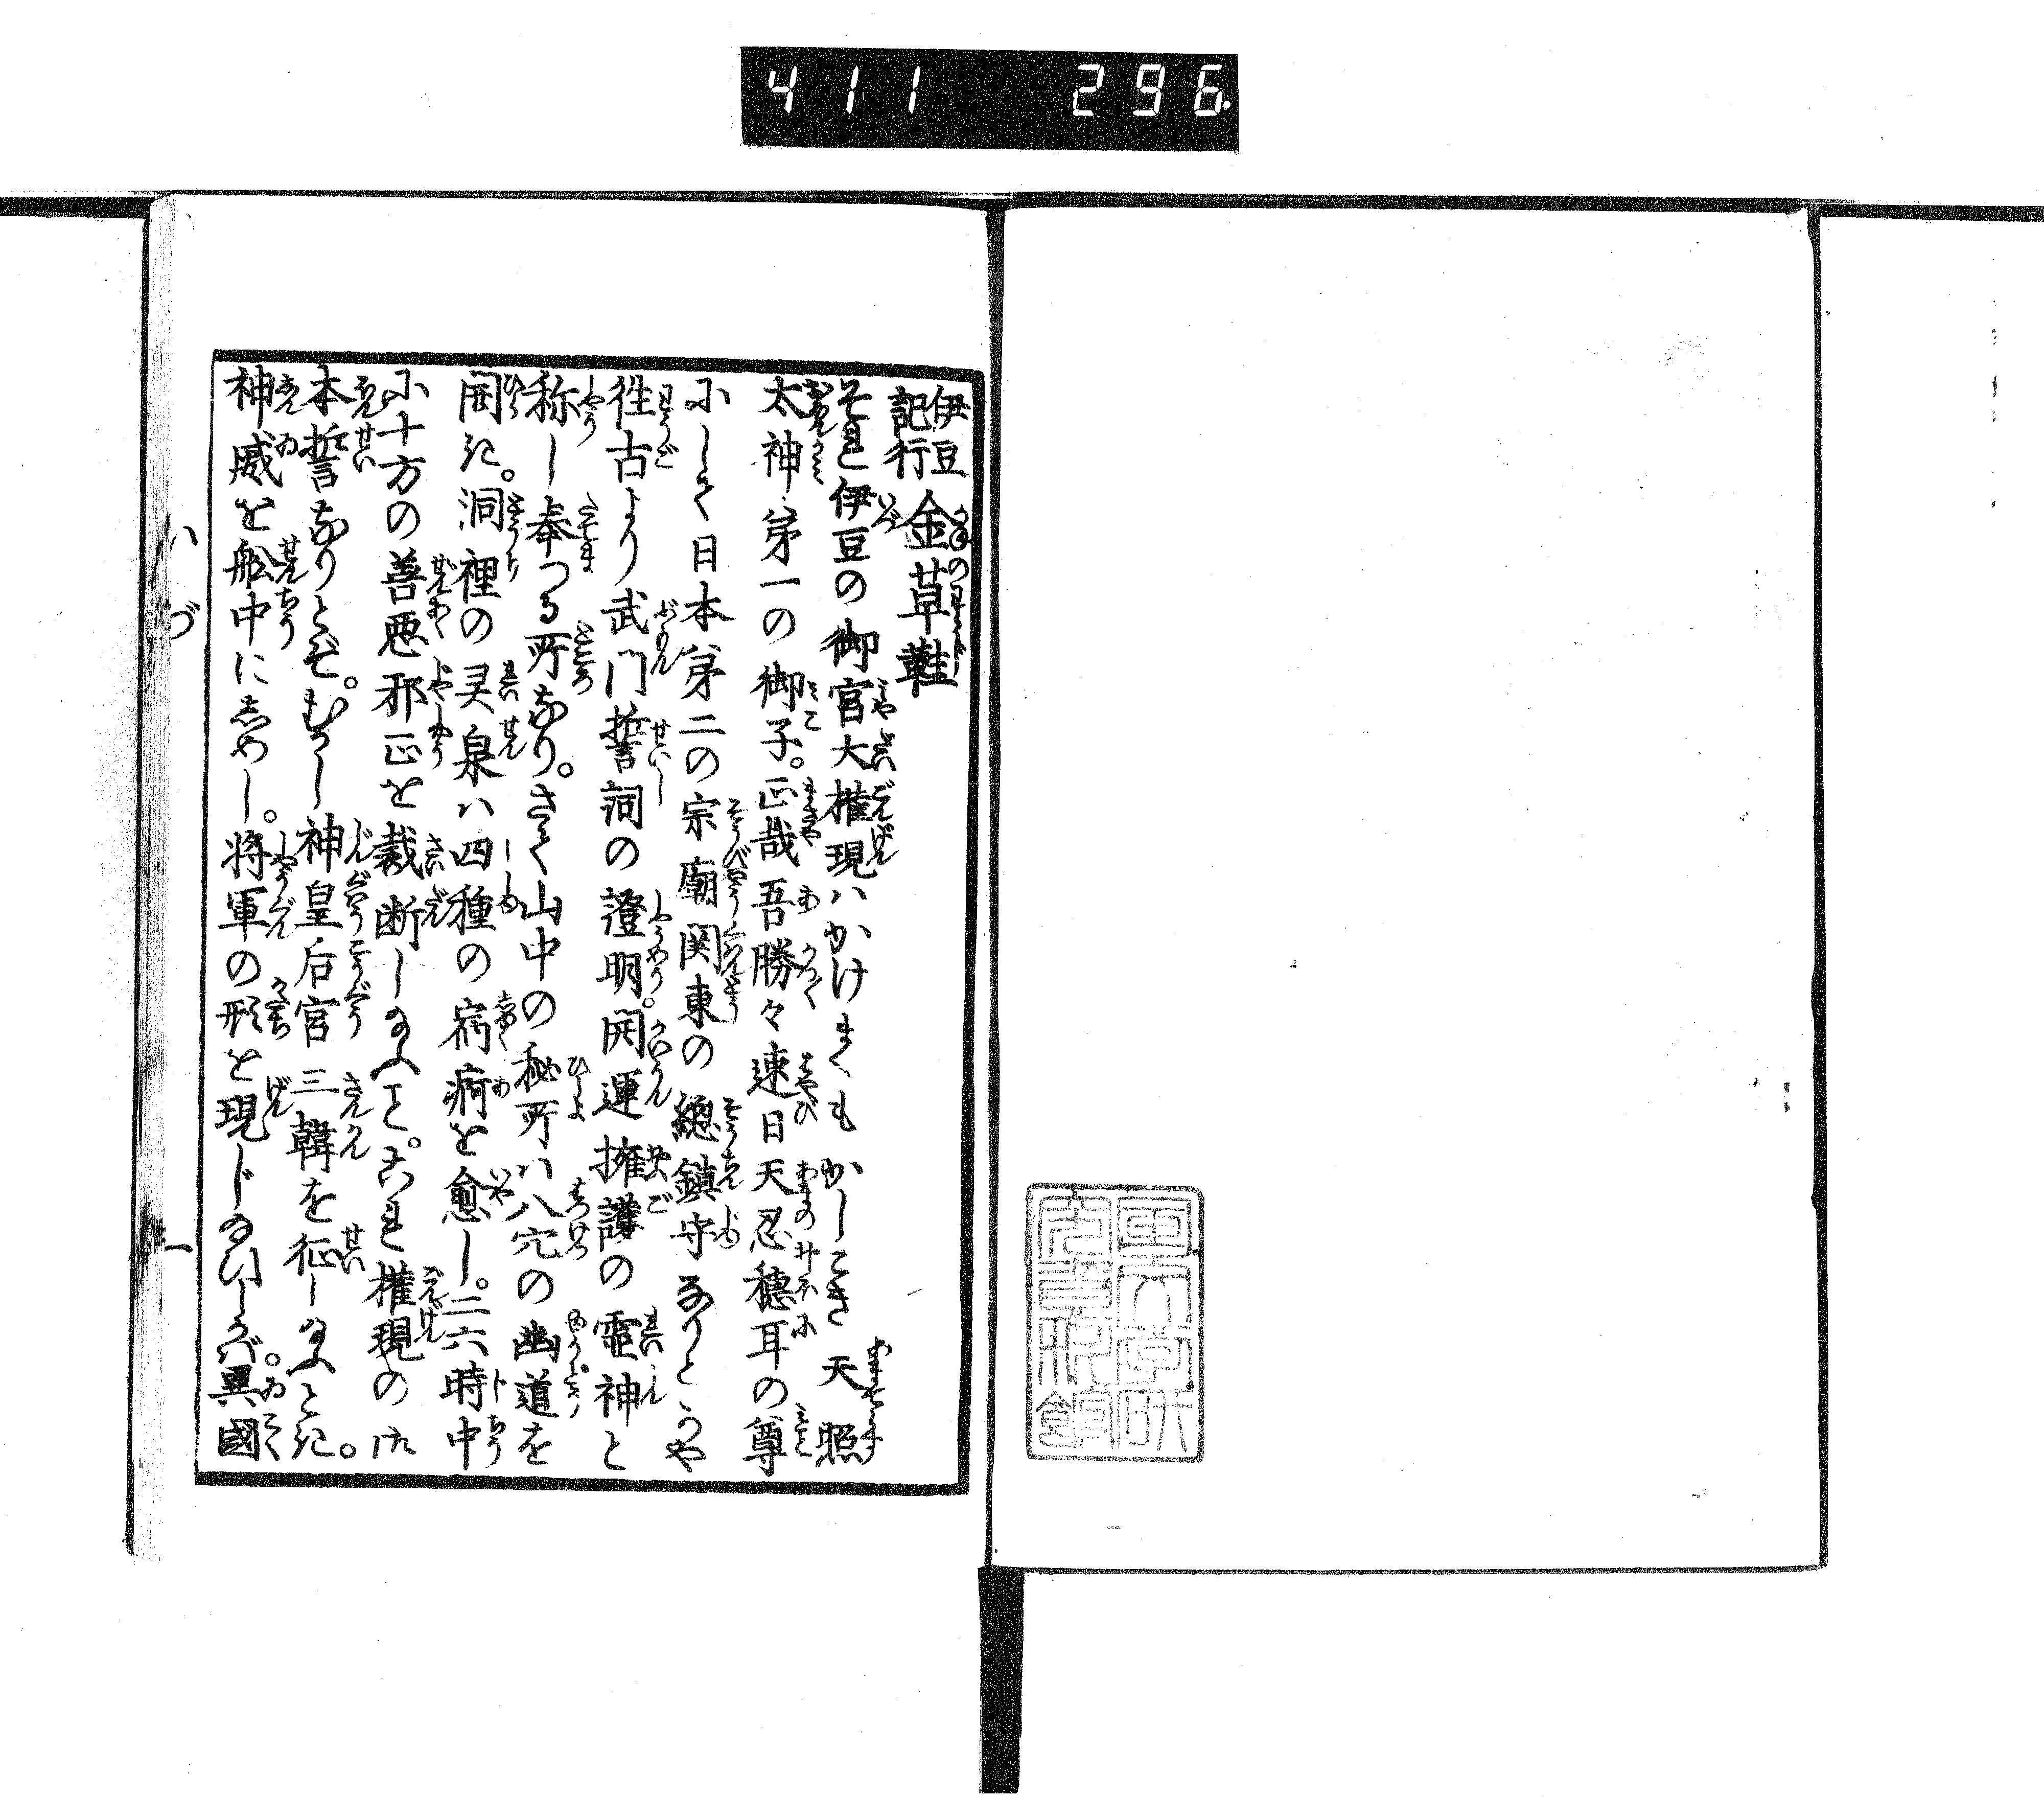 411 296
伊豆記行 金草鞋
それ伊豆の御宮大権現ハかけまくもかしこき天照
太神第一の御子。正哉吾勝々速日天忍穂耳の尊
にして日本第二の宗廟関東の總鎮守なりとかや
徃古より武門誓詞の證明。開運擁護の霊神と
称し奉つる所なり。さて山中の秘所ハ八穴の幽道を
開き。洞裡の灵泉ハ四種の病痾を愈し。二六時中
に十方の善悪邪正を裁断し給ふと。これ権現の御
本誓なりとぞ。むかし神皇后宮三韓を征し給ふとき。
神威を舩中にしめし。将軍の形を現じ給ひしかば。異國
いづ
一